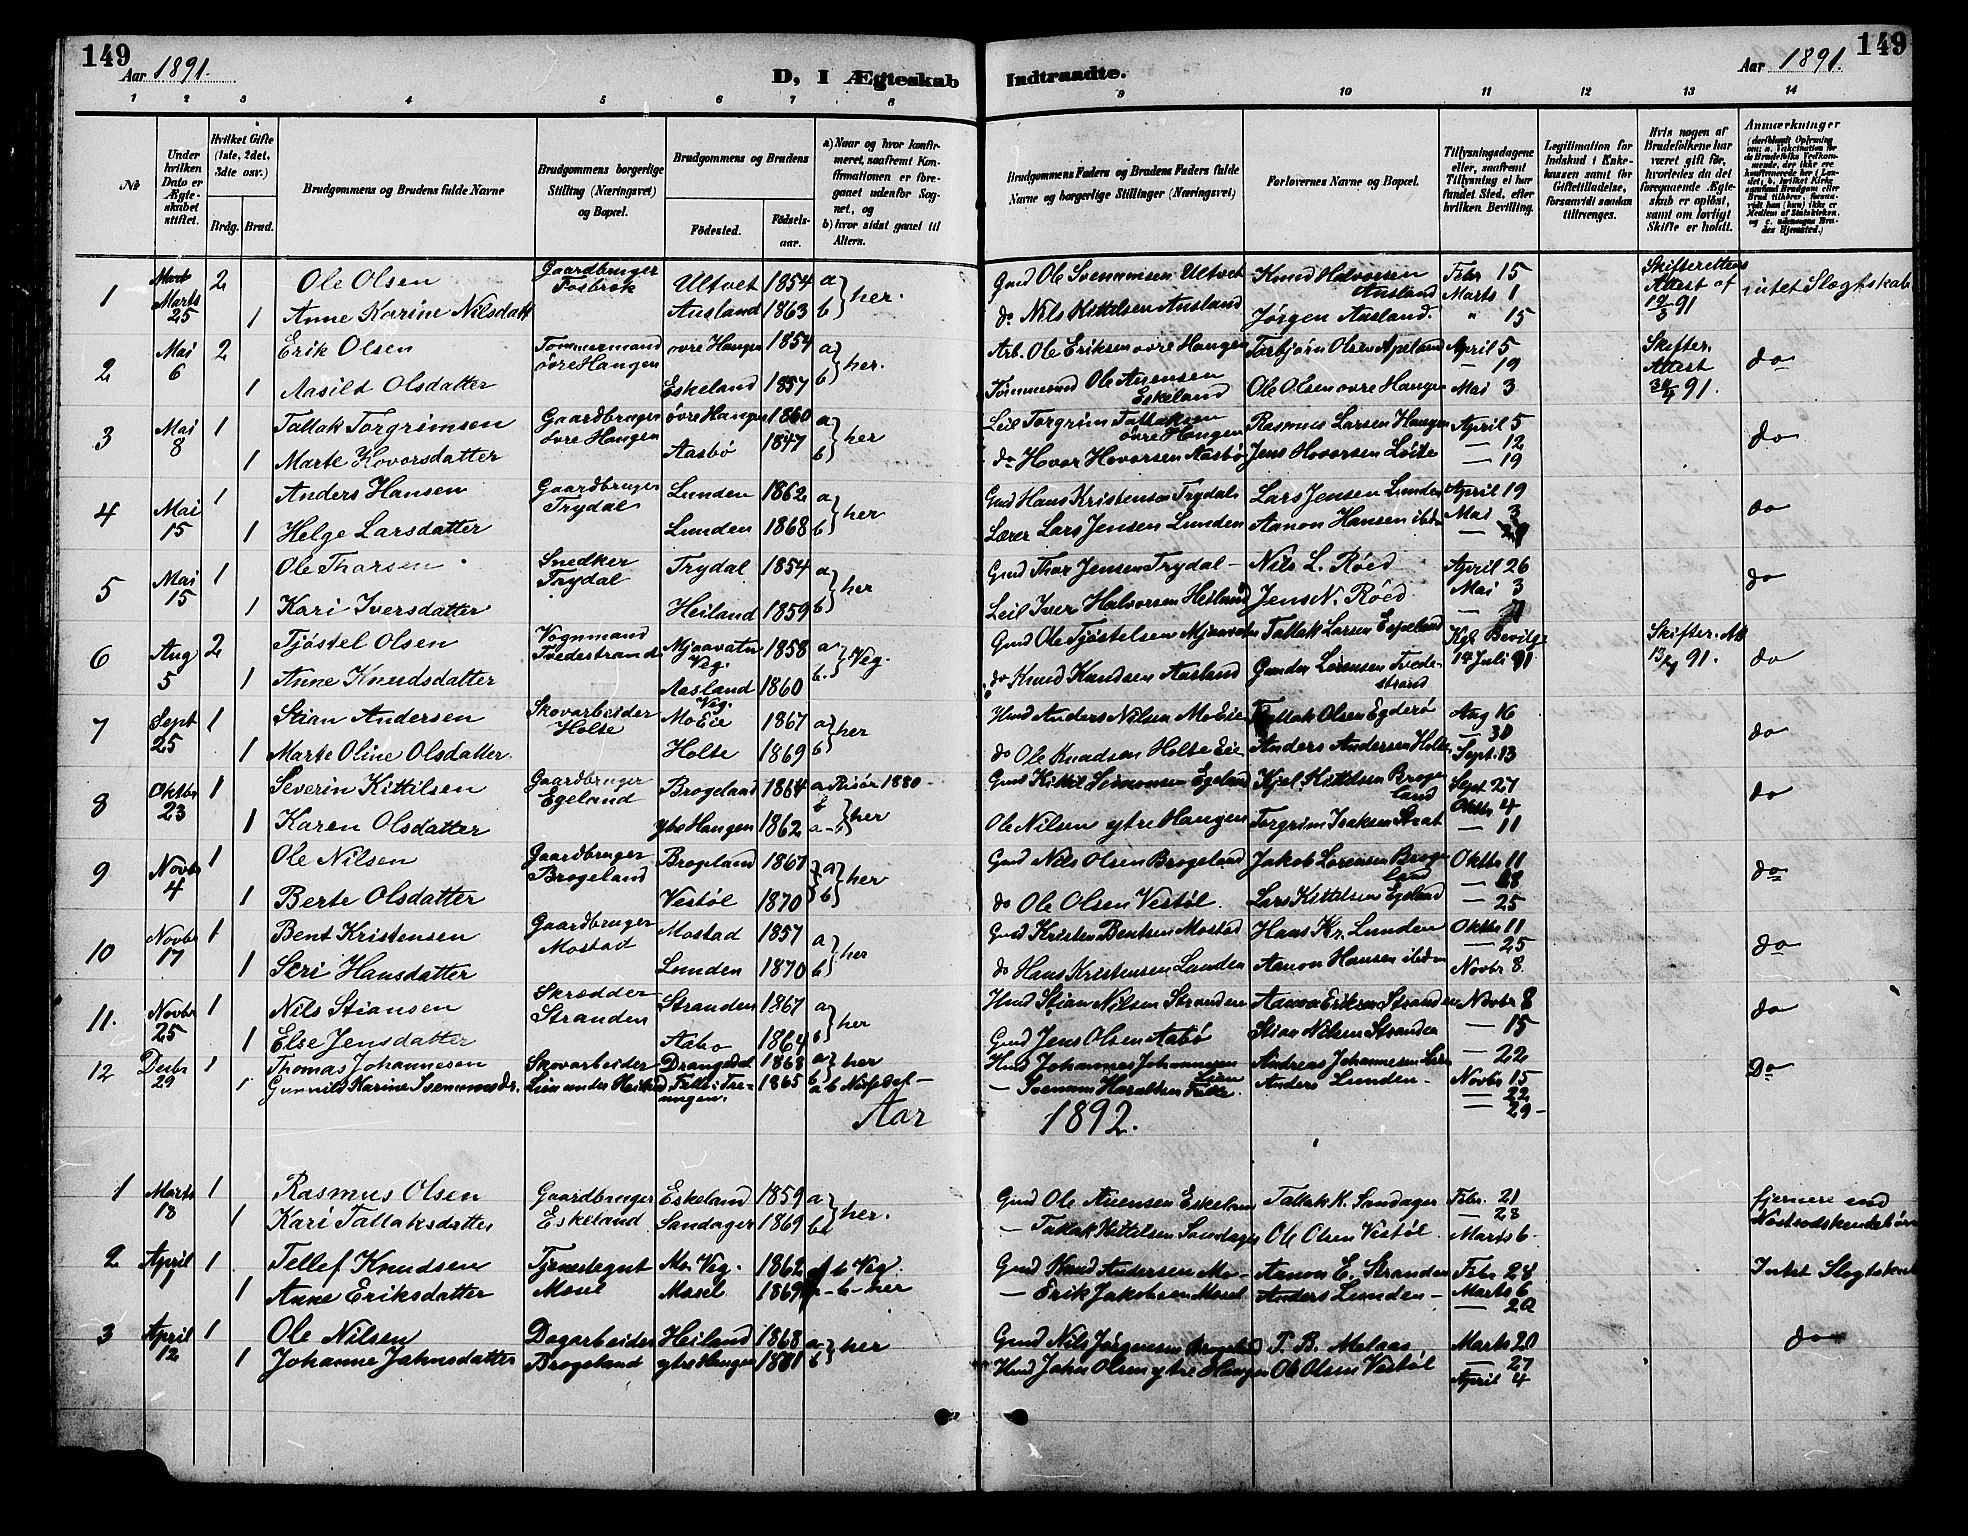 149
149
Aar 1891.
D, I Ægteskab Indtraadte.
Aar 1891.
1 2 3 4 5 6 7 8 9 10 11 12 13 14
No
Under hvilken Dato er Ægteskabet stiftet.
Hvilket Gifte (1ste, 2det, 3die osv.)
Brdg. Brud.
Brudgommens og Brudens fulde Navne
Brudgommens borgerlige Stilling (Næringsvei) og Bopæl.
Brudgommens og Brudens
Fødested. Fødselsaar.
a) Naar og hvor konfirmeret, saafremt Konfirmationen er foregaaet udenfor Sognet, og
b) hvor sidst gaaet til Alters.
Brudgommens Faders og Brudens Faders fulde Navne og borgerlige Stillinger (Næringsvei)
Forlovernes Navne og Bopæl.
Tillysningsdagene eller, saafremt Tillysning ei har fundet Sted, efter hvilken Bevilling.
Legitimation for Indskud i Enkekassen samt for Giftetilladelse, forsaavidt saadan tiltrænges.
Hvis nogen af Brudefolkene har været gift før, hvorledes da det foregaaende Ægteskab er opløst, samt om lovligt Skifte er holdt.
Anmærkninger
1 Marts 25 2 Ole Olsen Gaardbruger Fosbrok Ultvet 1854 a } her. Gmd Ole Svenumsen Ultvet Knud Halvorsen Ausland Febr 15 Skifterettens Attest af intet Slegtskab
1 Anne Karine Nilsdatt Ausland 1863 b do Nils Kittilsen Ausland Jørgen Ausland. Marts 1 " 15 91
2 Mai 6 2 Erik Olsen Tømmermand øvre Hangen øvre Hangen 1854 a } her. Arb. Ole Eriksen øvre Hangen Torbjørn Olsen Apeland April 5 — 19 Skifter. Attest 91. do
1 Aasild Olsdatter Eskeland 1857 b Tømmermd Ole Auensen Eskeland Ole Olsen øvre Hangen Mai 3
3 Mai 8 1 Tallak Torgrimsen Gaardbruger øvre Hangen øvre Hangen 1860 a } her Leil Torgrim Tallaksen øvre Hangen Rasmus Larsen Hangen April 5 — 12 do
1 Marte Hovorsdatter Aasbø 1847 b do Hovor Hovorsen Aasbø Jens Hovorsen Løite — 19
4 Mai 15 1 Anders Hansen Gaardbruger Trydal Lunden 1862 a } her Gmd Hans Kristensen Trydal Lars Jensen Lunden April 19 do
1 Helge Larsdatter Lunden 1868 b Lærer Lars Jensen Lunden Aanon Hansen ibdm Mai 3
5 Mai 15 1 Ole Thorsen Snedker Trydal Trydal 1854 a } her Gmd Thor Jensen Trydal – Nils L. Røed April 26 do
1 Kari Iversdatter Heiland 1859 b Leil Iver Halvorsen Heiland Jens N. Røed Mai 3
6 Aug 5 2 Tjøstel Olsen Vognmand Tvedestrand Mjaavatn Veg. 1858 a } Veg. Gmd Ole Tjøstelsen Mjaavatn Tallak Larsen Espeland Kgl Bevilg 14 Juli 91 Skifter. Att 91. do
1 Anne Knudsdatter Aasland Veg. 1860 b. do Knud Knudsen Ausland Gunder Lorensen Tvedestrand
7 Sept 25 1 Stian Andersen Skovarbeider Holte Mo Eie 1867 a } her Hmd Anders Nilsen Mo Eie Tallak Olsen Egderø Aug 16 — 30 do
1 Marte Oline Olsdatter. Holte 1869 b do Ole Knudsen Holte Eie Anders Andersen Holte Sept. 13
8 Oktbr 23 1 Severin Kittilsen Gaardbruger Egeland Brogeland 1864 a Risør 1880 – Gmd Kittil Simonsen Egeland Kjel Kittilsen Brogeland Sept 27 Oktbr 4 do
1 Karen Olsdatter ytre Hangen 1862 } her Ole Nilsen ytre Hangen Torgrim Isaksen Strat — 11
9 Novbr 4 1 Ole Nilsen Gaardbruger Brogeland Brogeland 1867 a } her Gmd Nils Olsen Brogeland Jakob Lorensen Brogeland Oktbr 11 — 18 do
1 Berte Olsdatter Vestøl 1870 b do Ole Olsen Vestøl. Lars Kittilsen Egeland — 25
10 Novbr 17 1 Bent Kristensen Gaardbruger Mostad Mostad 1857 a } her Gmd Kristen Bentsen Mostad Hans Kr. Lunden Oktbr 11 — 25 do
1 Siri Hansdatter Lunden 1870 b do Hans Kristensen Lunden Aanon Hansen ibdm Novbr 8.
11. Novbr 25 1 Nils Stiansen Skrædder Stranden Stranden 1867 a } her Hmd Stian Nilsen Stranden Aanon Eriksen Stranden Novbr 8 do
1 Else Jensdatter Aabo 1864 b Gmd Jens Olsen Aabø Stian Nilsen Stranden — 15 — 22
12 Decbr 29 1 Thomas Johannesen Skovarbeider Drangedal 1868 a } her Hmd Johannes Johannesen Lien Andreas Johannesen Lien Novbr 15 Do
1 Gunvild Karine Svennumsdr. Lien under Heiland Felle. Treungen. 1865 b a b Nissedal – — Svenum Haraldsen Felle. Anders Lunden – — 22 — 29 –
Aar 1892.
1 Marts 18 1 Rasmus Olsen Gaardbruger Eskeland Eskeland 1859 a } her. Gmd Ole Auensen Eskeland Tallak K. Sandager Febr. 21 — 28 fjernere end Næstsødskendebørn
1 Kari Tallaksdatter Sandager 1869 b — Tallak Kittilsen Sandager Ole Olsen Vestøl Marts 6 –
2 April 1 1 Tellef Knudsen Tjenestegut Mosel Mo. Veg. 1862 b Veg. Gmd Knud Andersen Mo – Aanon E. Stranden Febr 28 Intet Slegtskab
1 Anne Eriksdatter Mosel 1869 a – b – her — Erik Jakobsen Mosel Anders Lunden – Marts 6 — 20
3 April 12 1 Ole Nilsen Dagarbeider Brogeland Heiland 1868 a } her Gmd Nils Jørgensen Brogeland T. B. Melaas Marts 20 do
1 Johanne Jahnsdatter ytre Hangen 1881 b Hmd Jahn Olsen ytre Hangen Ole Olsen Vestøl — 27 April 4